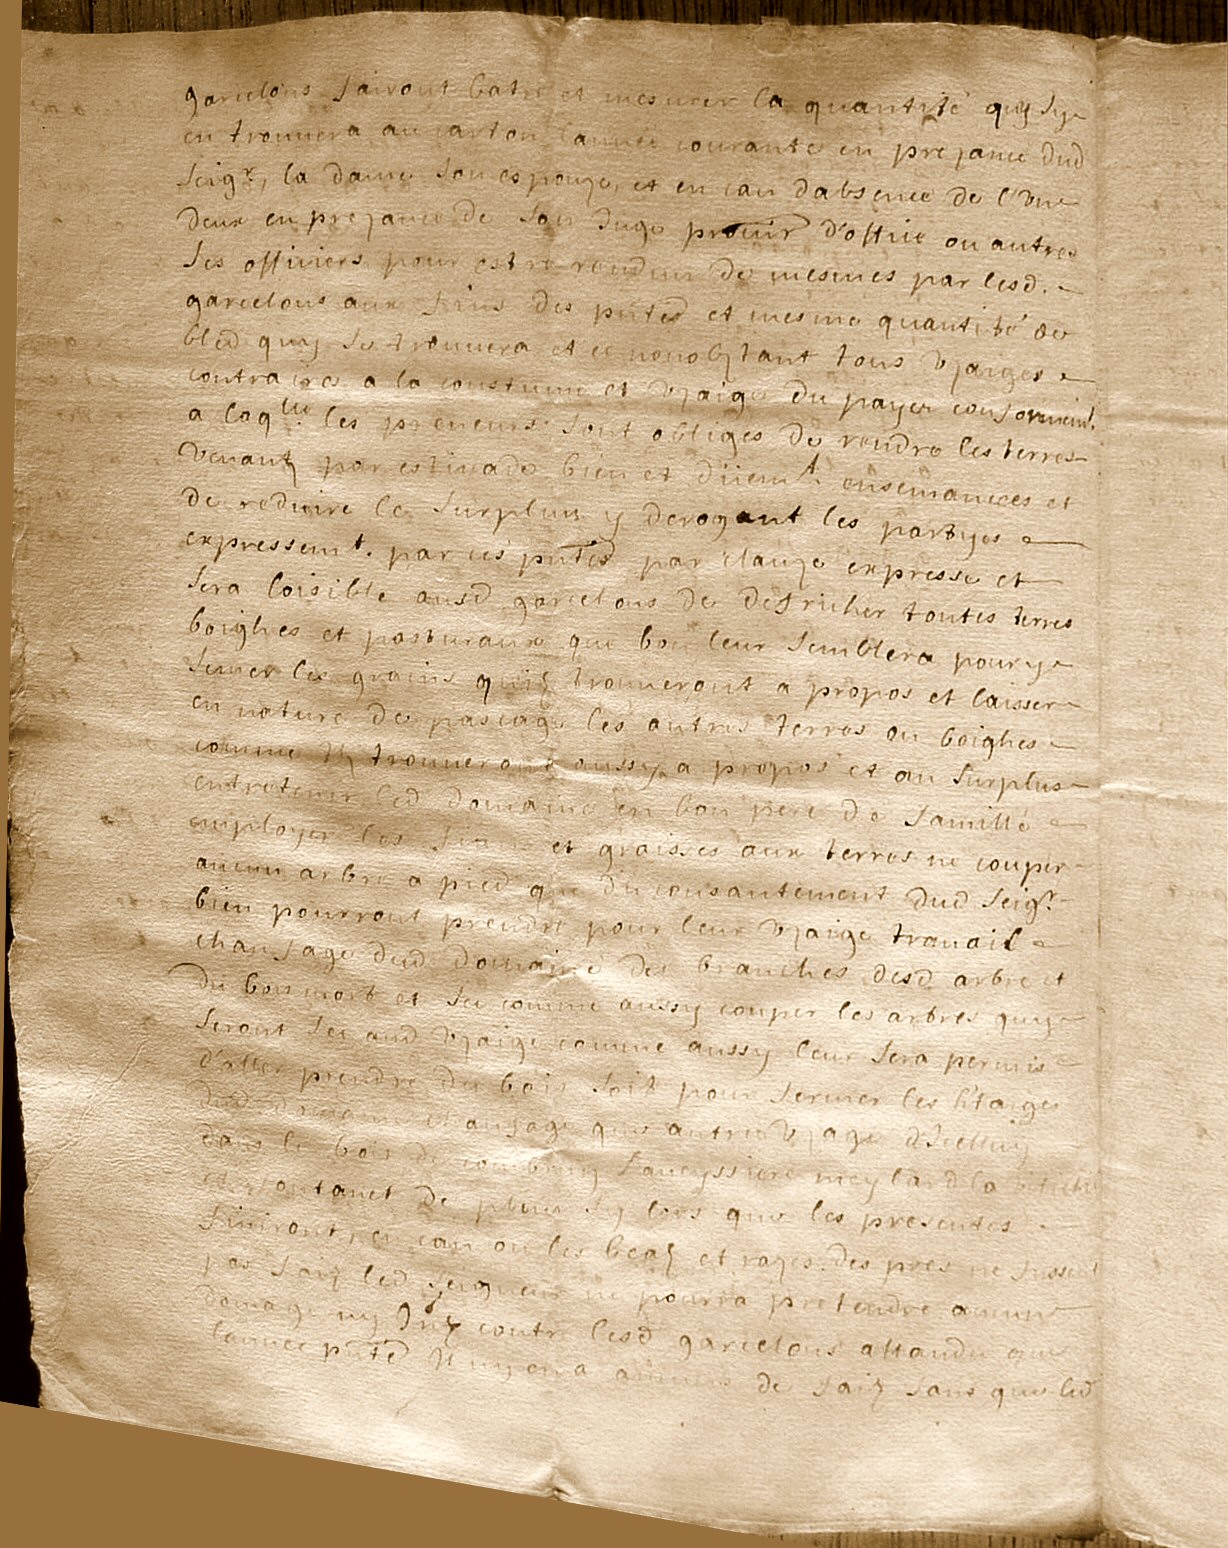 garcelons fairont batre et mesurer la quantité quy sy
en trouvera au carton l'année courante en prezance dud
seigr, la dame son espouze, et en cas dabsence de l'un
deux en prezance de son Juge procur d'office ou autres
ses officiers pour estre rendue de mesmes par lesd.
garcelons aux fins des pntes et mesme quantité de
bled quy se trouvera et ce nonobstant tous uzaiges
contraires a la coustume et uzaige du payes conformemt.
a laqlle. les preneurs sont obliges de rendre les terres
venant par estivade bien et düemt. ensemancees et
de reduire le surplus y derogant les partyes
expressemt. par ces pntes par clauze expresse et
sera loisible ausd garcelons de desfricher toutes terres
boighes et pasturaux que bon leur semblera pour y
semer les grains quilz trouveront a propos et laisser
en nature de pascage les autres terres ou boighes
comme Ilz trouveront aussy a propos et au surplus
entretenir led domaine en bon pere de famille
employer les fiens et graisses aux terres ne couper
aucun arbre a pied que du consantement dud seigr.
bien pourront prendre pour leur uzaige travail
chaufage dud domaine des branches desd arbre et
du bois mort et sec comme aussy couper les arbres quy
seront sec aud uzaige comme aussy leur sera permis
d'aller prendre du bois soit pour fermer les h'taiges
dud domaine chaufage que autre uzage d'Icelluy
dans le bois de
et de lors que les presentes
finiront, et cas ou les beaz et razes des pres ne fussent
pas faiz led seigneur ne pourra pretendre aucun
domage ny Intz contre lesd garcelons attandu que
l'année pnte Il ny en a aucuns de faiz sans que led